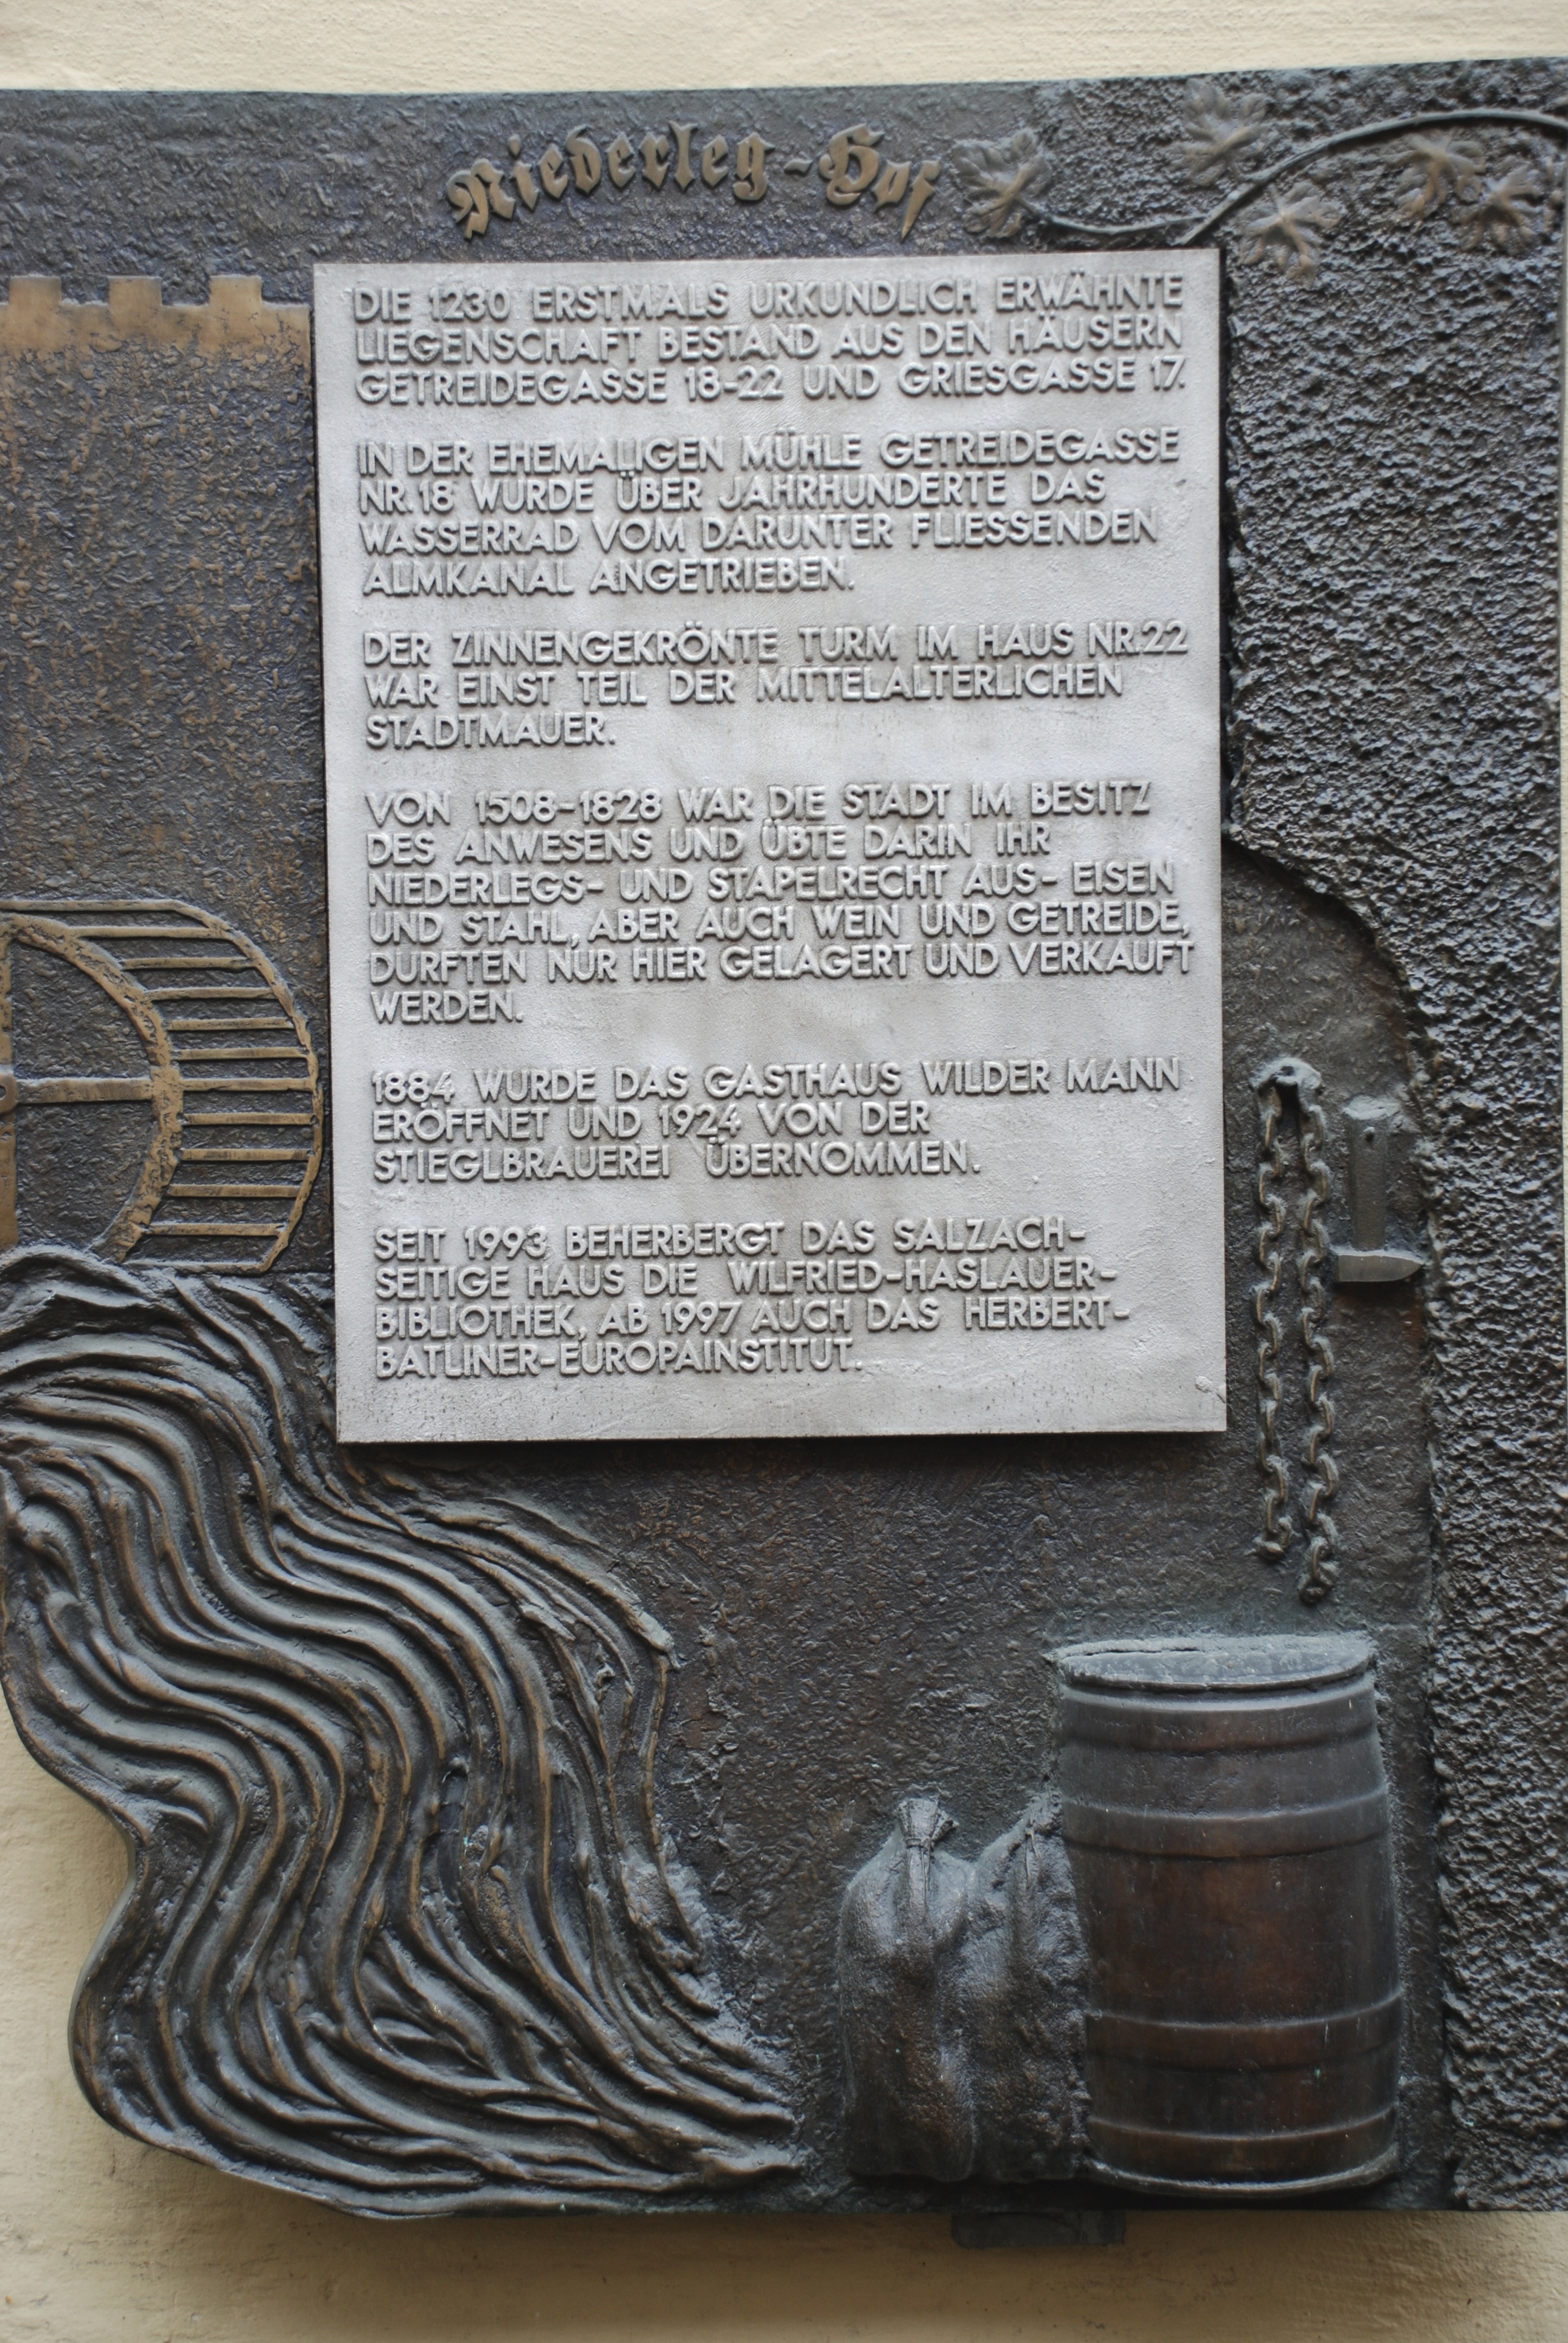 Niederleg-Hof
DIE 1230 ERSTMALS URKUNDLICH ERWÄHNTE
LIEGENSCHAFT BESTAND AUS DEN HÄUSERN
GETREIDEGASSE 18-22 UND GRIESGASSE 17.
IN DER EHEMALIGEN MÜHLE GETREIDEGASSE
NR.18 WURDE ÜBER JAHRHUNDERTE DAS
WASSERRAD VOM DARUNTER FLIESSENDEN
ALMKANAL ANGETRIEBEN.
DER ZINNENGEKRÖNTE TURM IM HAUS NR.22
WAR EINST TEIL DER MITTELALTERLICHEN
STADTMAUER.
VON 1508-1828 WAR DIE STADT IM BESITZ
DES ANWESENS UND ÜBTE DARIN IHR
NIEDERLEGS- UND STAPELRECHT AUS- EISEN
UND STAHL, ABER AUCH WEIN UND GETREIDE,
DURFTEN NUR HIER GELAGERT UND VERKAUFT
WERDEN.
1884 WURDE DAS GASTHAUS WILDER MANN
ERÖFFNET UND 1924 VON DER
STIEGLBRAUEREI ÜBERNOMMEN.
SEIT 1993 BEHERBERGT DAS SALZACH-
SEITIGE HAUS DIE WILFRIED-HASLAUER-
BIBLIOTHEK, AB 1997 AUCH DAS HERBERT-
BATLINER-EUROPAINSTITUT.